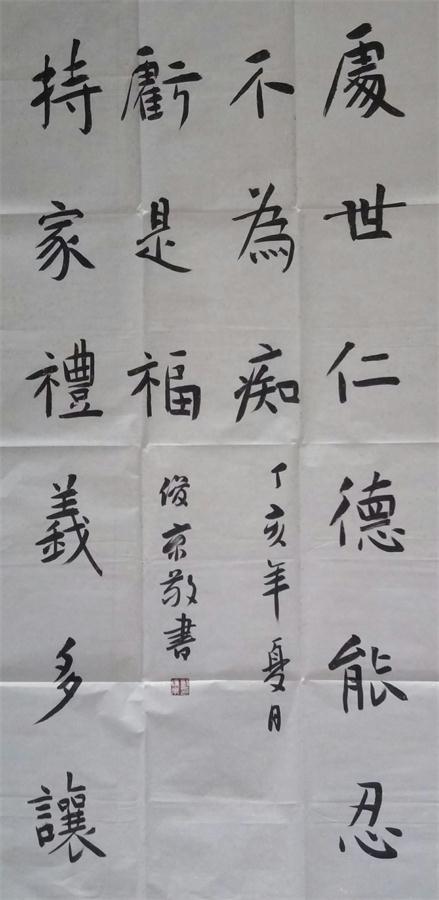 處世仁德能忍
不為痴
持家禮義多讓
虧是福
丁亥年夏月
俊京敬書